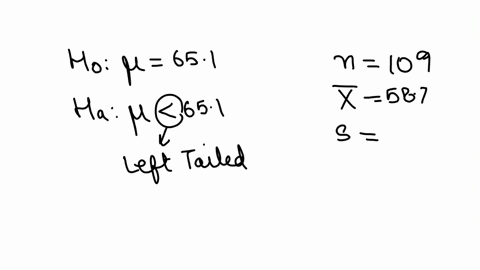 H₀: μ = 65.1
Hₐ: μ < 65.1
Left Tailed
n = 109
X̅ = 58.7
S =